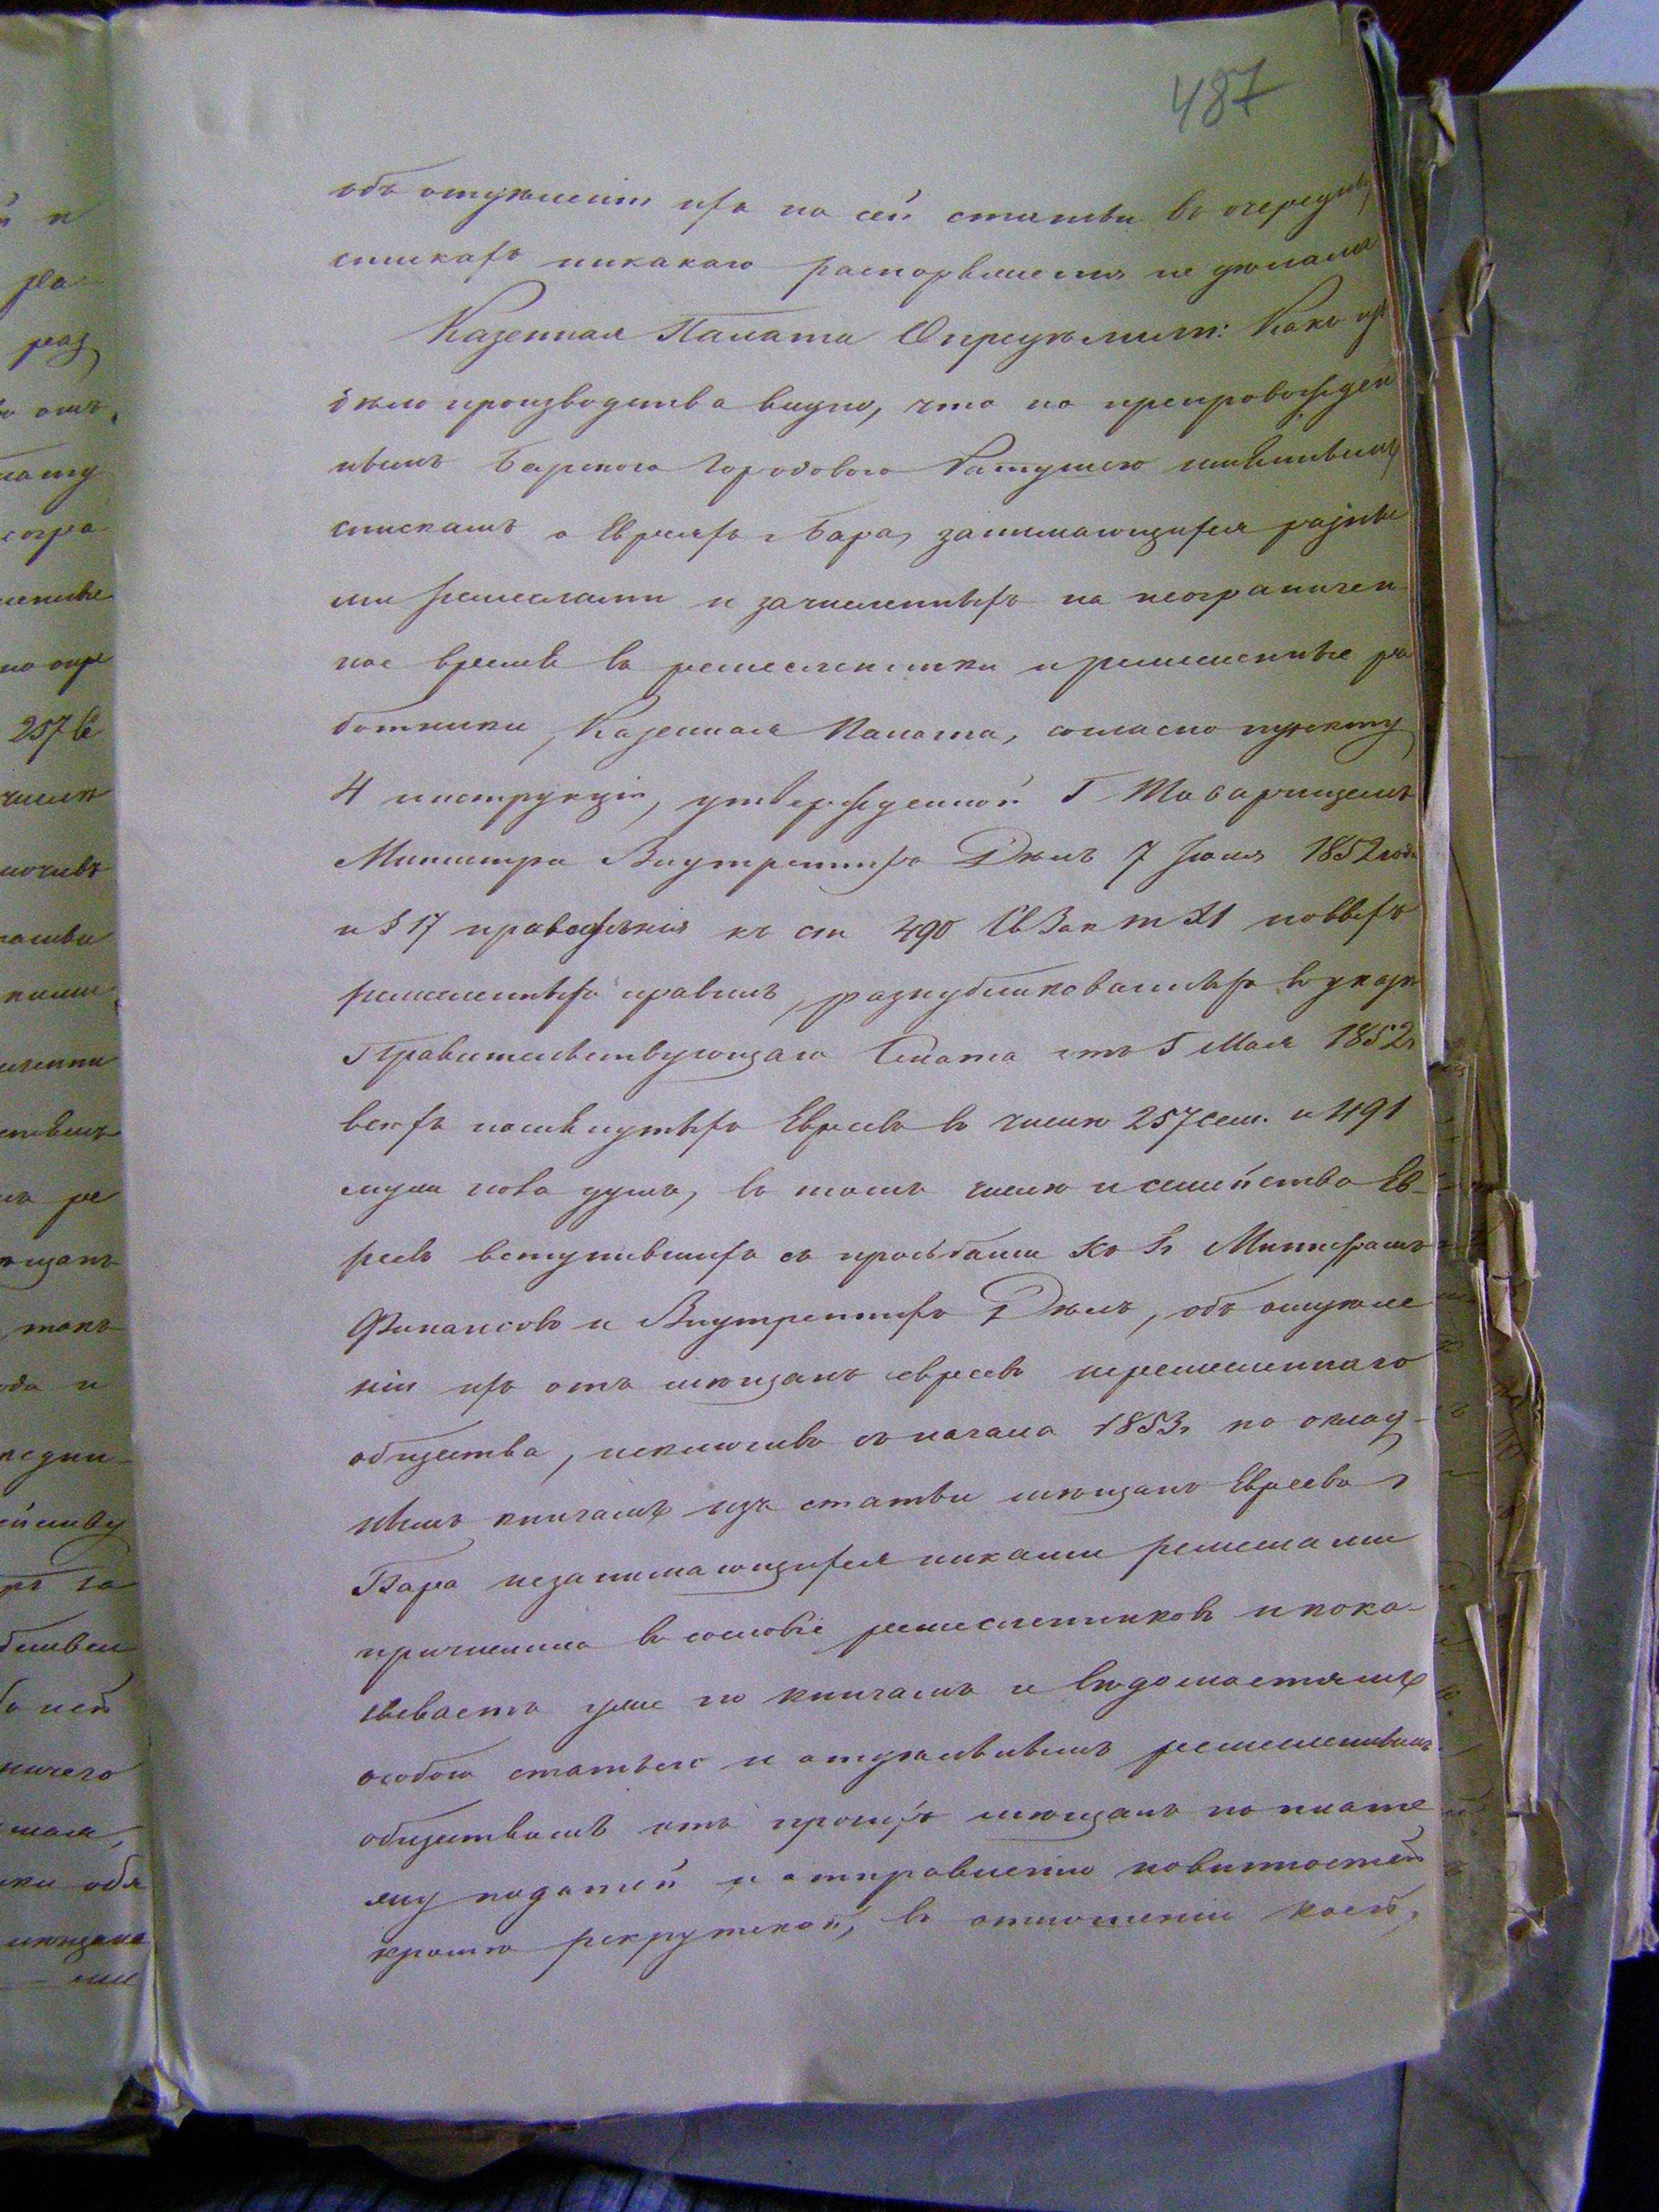 487
объ отдѣленіи ихъ по сей статьи въ очередныхъ
спискахъ никакаго распоряженія не дѣлала
Казенная Палата Опредѣлили: Какъ изъ
сего производства видно, что по препровожден
нымъ Барскою Городовою Ратушею имяннымъ
спискамъ о Евреяхъ г Бара, занимающихся разны
ми ремеслами и зачисленныхъ на неограничен
ное время въ ремесленники и ремесленные ра
ботники, Казенная Палата, согласно пункту
4 инструкціи, утвержденной Г Товарищемъ
Министра Внутреннихъ Дѣлъ 7 Іюля 1852 года
и § 17 къ ст 490 Св Зак т XI новыхъ
ремесленныхъ правилъ, распубликованныхъ въ указѣ
Правительствующаго Сената отъ 5 Мая 1852 г
всѣхъ помянутыхъ Евреевъ въ числѣ 257 сем. и 491
муж пола душъ, въ томъ числѣ и семейства Ев-
реевъ вступившихъ съ прозьбами къ Гг Министрамъ
Финансовъ и Внутреннихъ Дѣлъ, объ отдѣле
ніи ихъ отъ мѣщанъ евреевъ неремесленнаго
общества, исключивъ съ начала 1853 г по оклад-
нымъ книгамъ изъ статьи мѣщанъ Евреевъ г
Бара незанимающихся никакими ремеслами
причислила въ сословіе ремесленниковъ и пока-
зываетъ уже по книгамъ и вѣдомостямъ
особою статьею и отдѣльнымъ ремесленнымъ
обществомъ отъ прочихъ мѣщанъ по плате
жу податей и отправленію повинностей
кромѣ рекрутской, въ отношеніи коей,